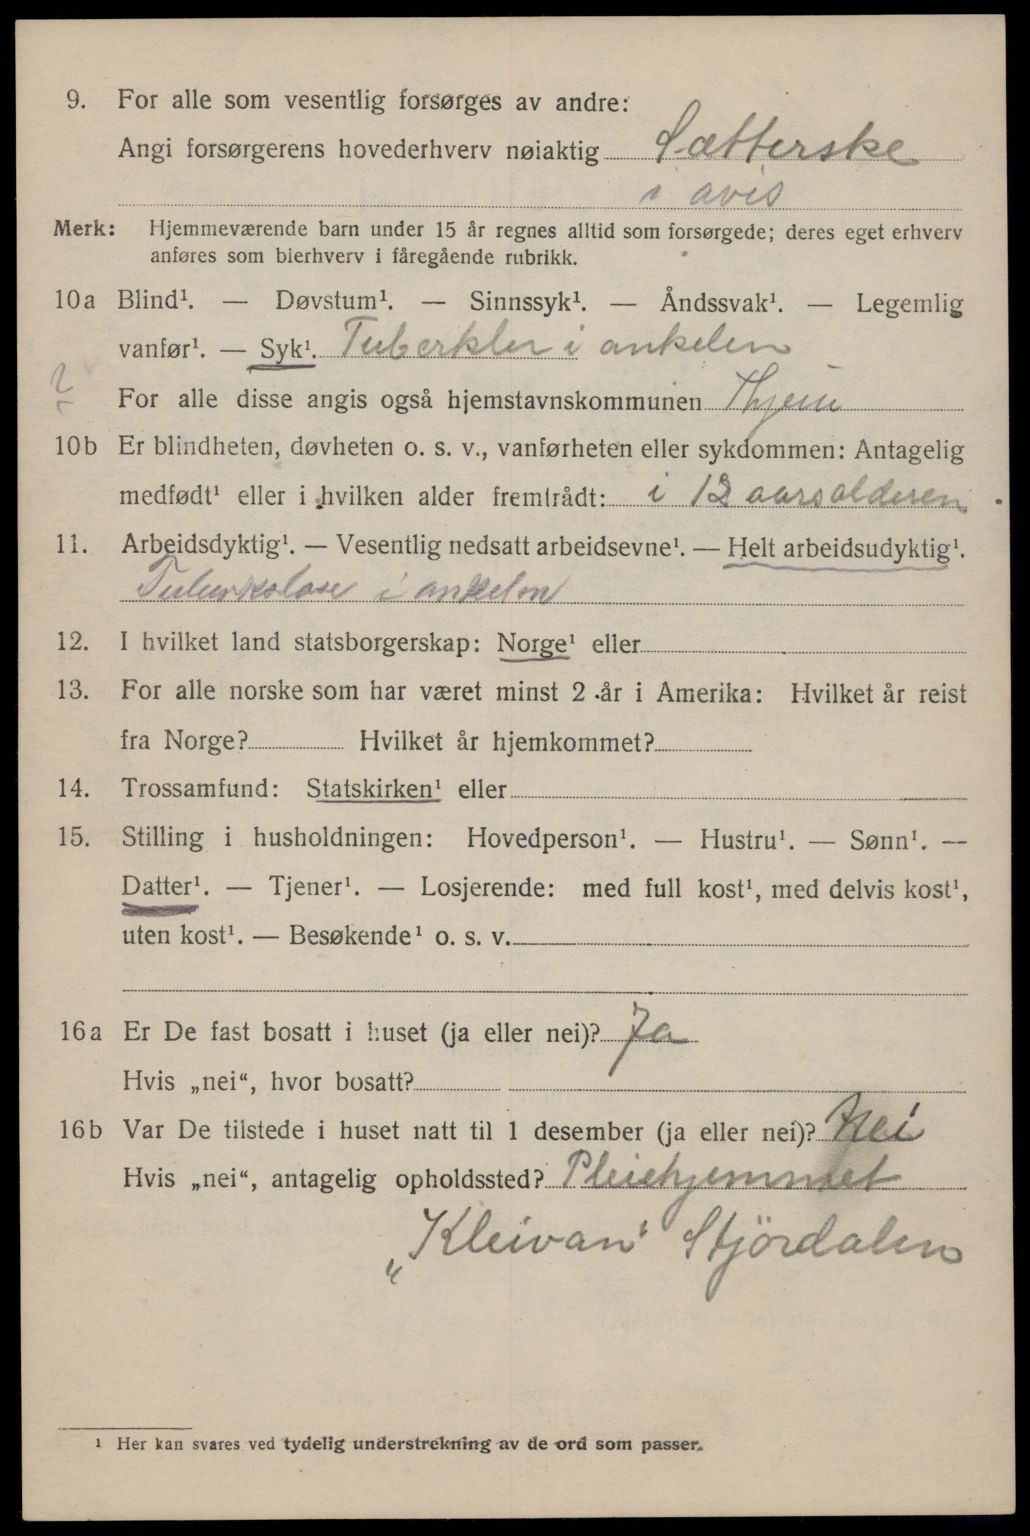 9. For alle som vesentlig forsørges av andre:
Angi forsørgerens hovederhverv nøiaktig Sætterske
i avis
Merk: Hjemmeværende barn under 15 år regnes alltid som forsørgede; deres eget erhverv
anføres som bierhverv i fåregående rubrikk.
10a Blind¹. — Døvstum¹. — Sinnssyk¹. — Åndssvak¹. — Legemlig
vanfør¹. — Syk¹. Tuberkler i ankelen
For alle disse angis også hjemstavnskommunen
10b Er blindheten, døvheten o. s. v., vanførheten eller sykdommen: Antagelig
medfødt¹ eller i hvilken alder fremtrådt: i 12 aarsalderen
11. Arbeidsdyktig¹. — Vesentlig nedsatt arbeidsevne¹. — Helt arbeidsudyktig¹.
Tuberkolose i ankelen
12. I hvilket land statsborgerskap: Norge¹ eller
13. For alle norske som har været minst 2 år i Amerika: Hvilket år reist
fra Norge? Hvilket år hjemkommet?
14. Trossamfund: Statskirken¹ eller
15. Stilling i husholdningen: Hovedperson¹. — Hustru¹. — Sønn¹. —
Datter¹. — Tjener¹. — Losjerende: med full kost¹, med delvis kost¹,
uten kost¹. — Besøkende¹ o. s. v.
16a Er De fast bosatt i huset (ja eller nei)? Ja
Hvis „nei“, hvor bosatt?
16b Var De tilstede i huset natt til 1 desember (ja eller nei)? Nei
Hvis „nei“, antagelig opholdssted? Pleiehjemmet
„Kleivan“ Stjördalen
¹ Her kan svares ved tydelig understrekning av de ord som passer.